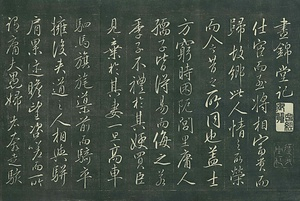 晝錦堂記
仕宦而至將相富貴而
歸故鄉此人情之所榮
而今昔之所同也蓋士
方窮時困阨閭里庸人
孺子皆得易而侮之若
季子不禮於其嫂買臣
見棄於其妻一旦高車
駟馬旗旄導前而騎卒
擁後夾道之人相與駢
肩累迹瞻望咨嗟而所
謂庸夫愚婦者奔走駭